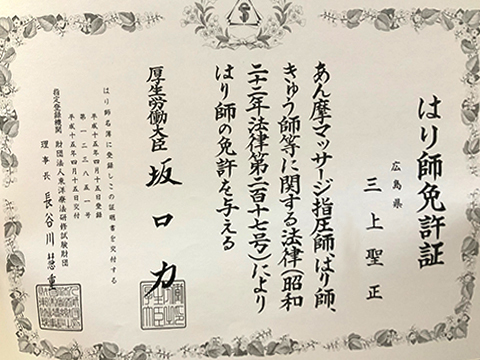 はり師免許証
広島県
三上聖正
あん摩マッサージ指圧師、はり師、
きゅう師等に関する法律(昭和
二十二年法律第二百十七号)により
はり師の免許を与える
厚生労働大臣 坂口力
はり師名簿に登録しこの証明書を交付する
平成十五年四月十五日登録
第一二三八五一号
平成十五年四月十五日交付
指定登録機関 財団法人東洋療法研修試験財団
理事長 長谷川慧重